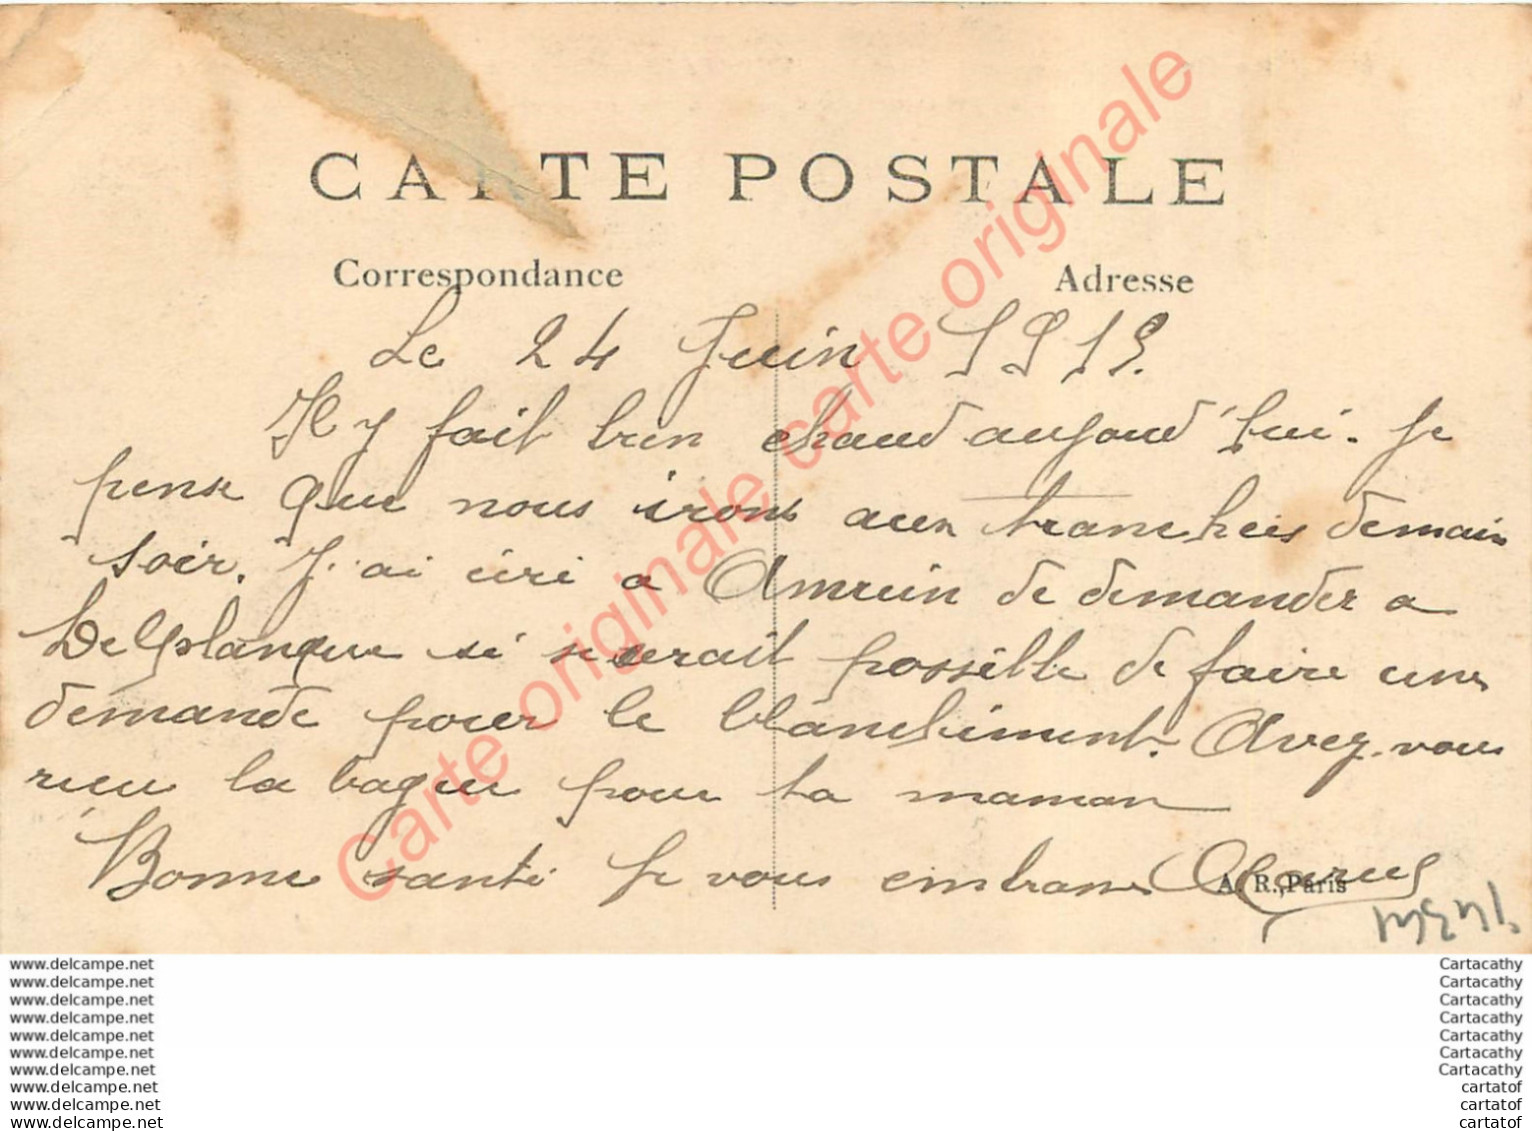 CARTE POSTALE
Correspondance
Adresse
Le 24 Juin 1915
Il y fait bien chaud aujourd'hui. Je
pense que nous irons aux tranchées demain
soir. J'ai écri a de demander a
Delplanque si serait possible de faire une
demande pour le blanchiment. Avez-vous
reçu la bague pour ta maman
Bonne santé Je vous embrasse
A. R., Paris
Carte originale carte originale carte originale
www.delcampe.net
www.delcampe.net
www.delcampe.net
www.delcampe.net
www.delcampe.net
www.delcampe.net
www.delcampe.net
www.delcampe.net
www.delcampe.net
www.delcampe.net
Cartacathy
Cartacathy
Cartacathy
Cartacathy
Cartacathy
Cartacathy
Cartacathy
cartatof
cartatof
cartatof